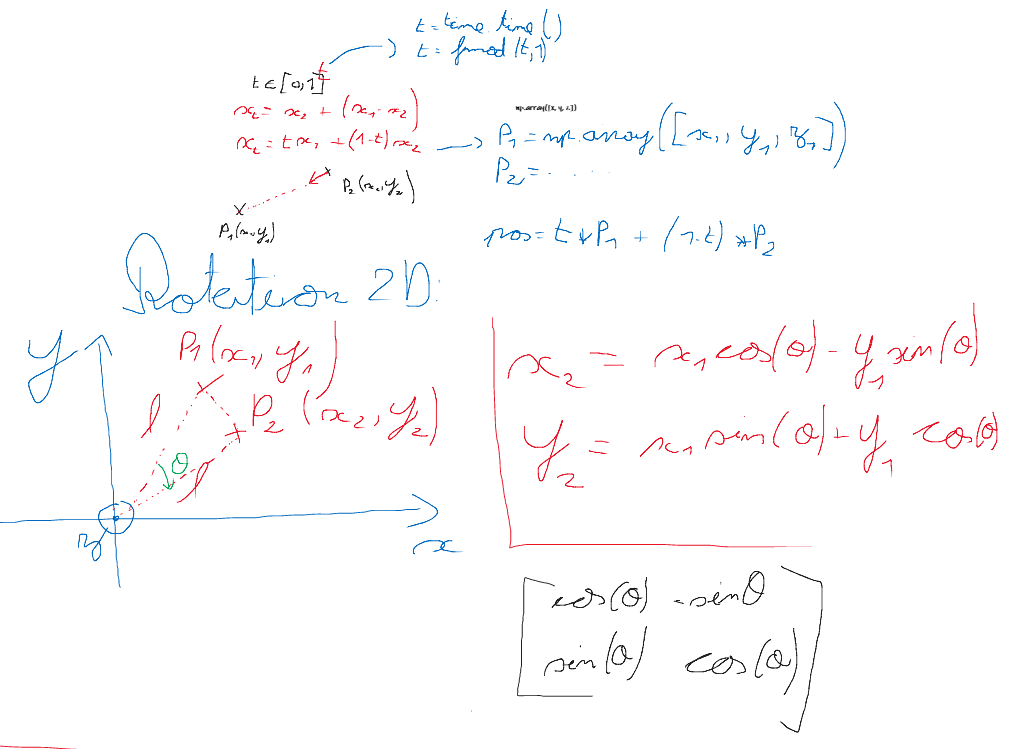 t = time.time()
t = fmod(t,1)
t ∈ [0,1]
t
x_t = x_2 + (x_1 - x_2)
x_t = t x_1 + (1-t) x_2
np.array([x, y, z])
P_1 = np.array([x_1, y_1, z_1])
P_2 = .....
P_2(x_2, y_2)
P_1(x_1, y_1)
pos = t * P_1 + (1-t) * P_2
Rotation 2D:
y
P1(x_1, y_1)
P_2 (x_2, y_2)
l
θ
l
z
x
x_2 = x_1 cos(θ) - y_1 sin(θ)
y_2 = x_1 sin(θ) + y_1 cos(θ)
cos(θ) -sinθ
sin(θ) cos(θ)